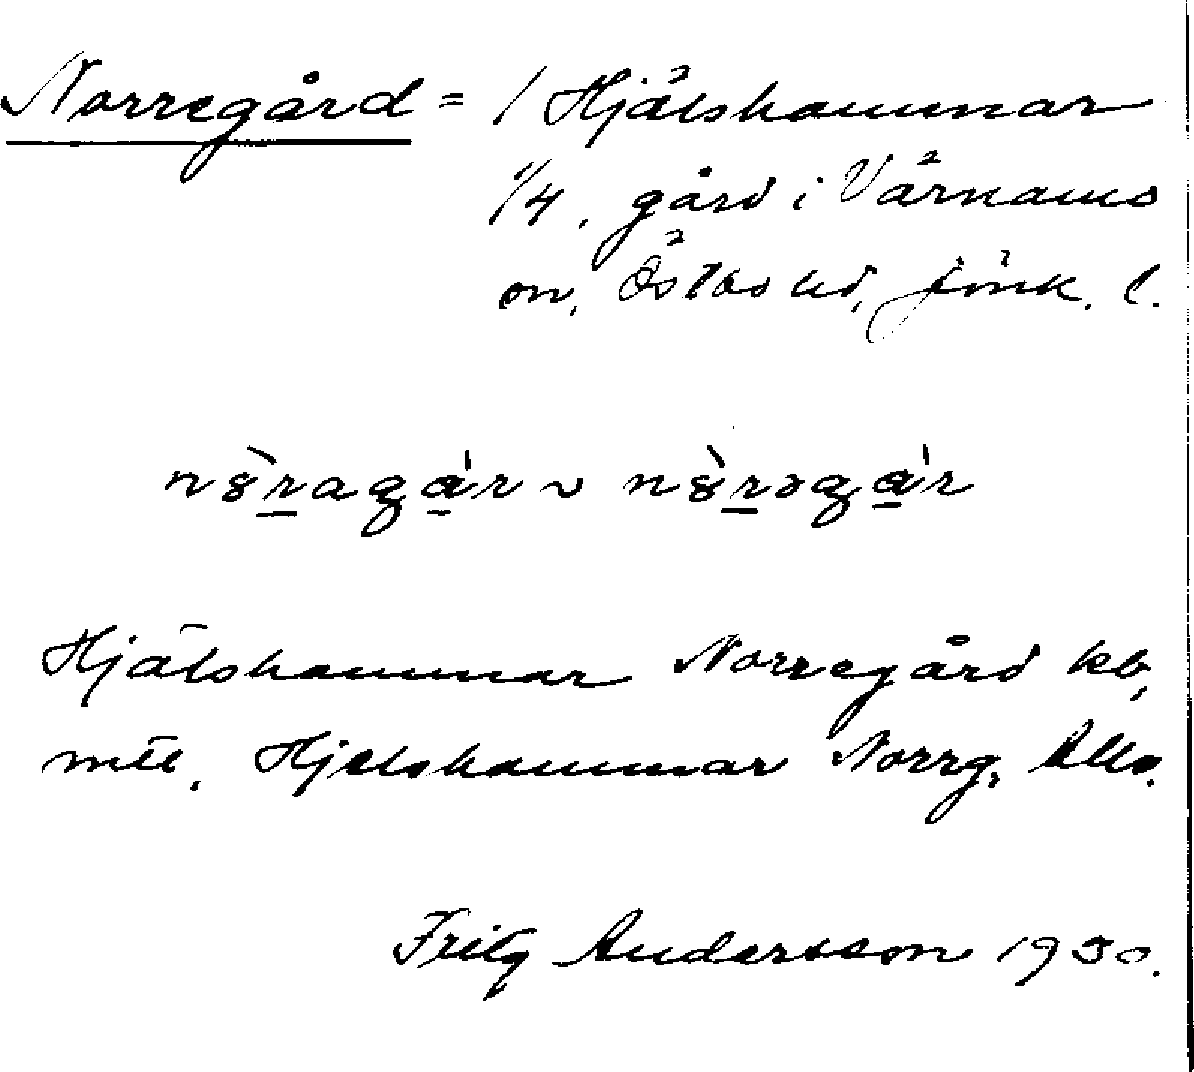 Norregård = / Hjälshammar
1/4, gård i Värnamo
sn, Östbo hd, Jönk. l.
nȣ̀raga̱'r ~ nȣ̀rəga̱'r
Hjälshammar Norregård kb,
mtl, Hjelshammar Norrg, Allm.
Fritz Andersson 1930.